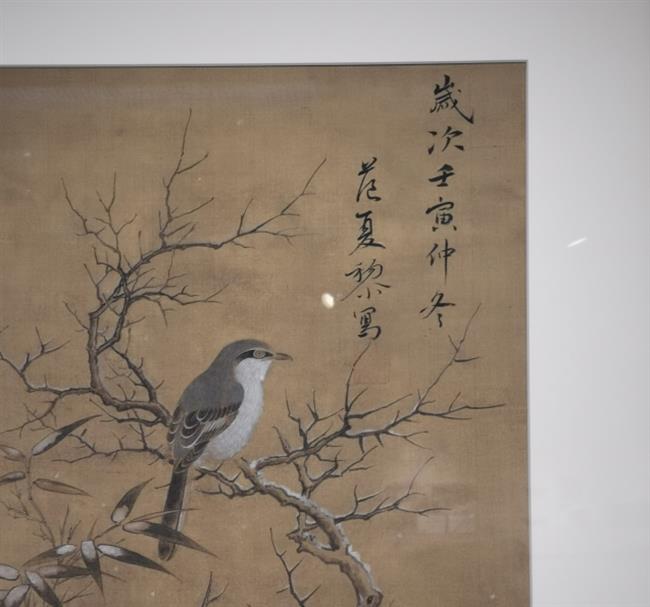 歲次壬寅仲冬
范夏黎寫